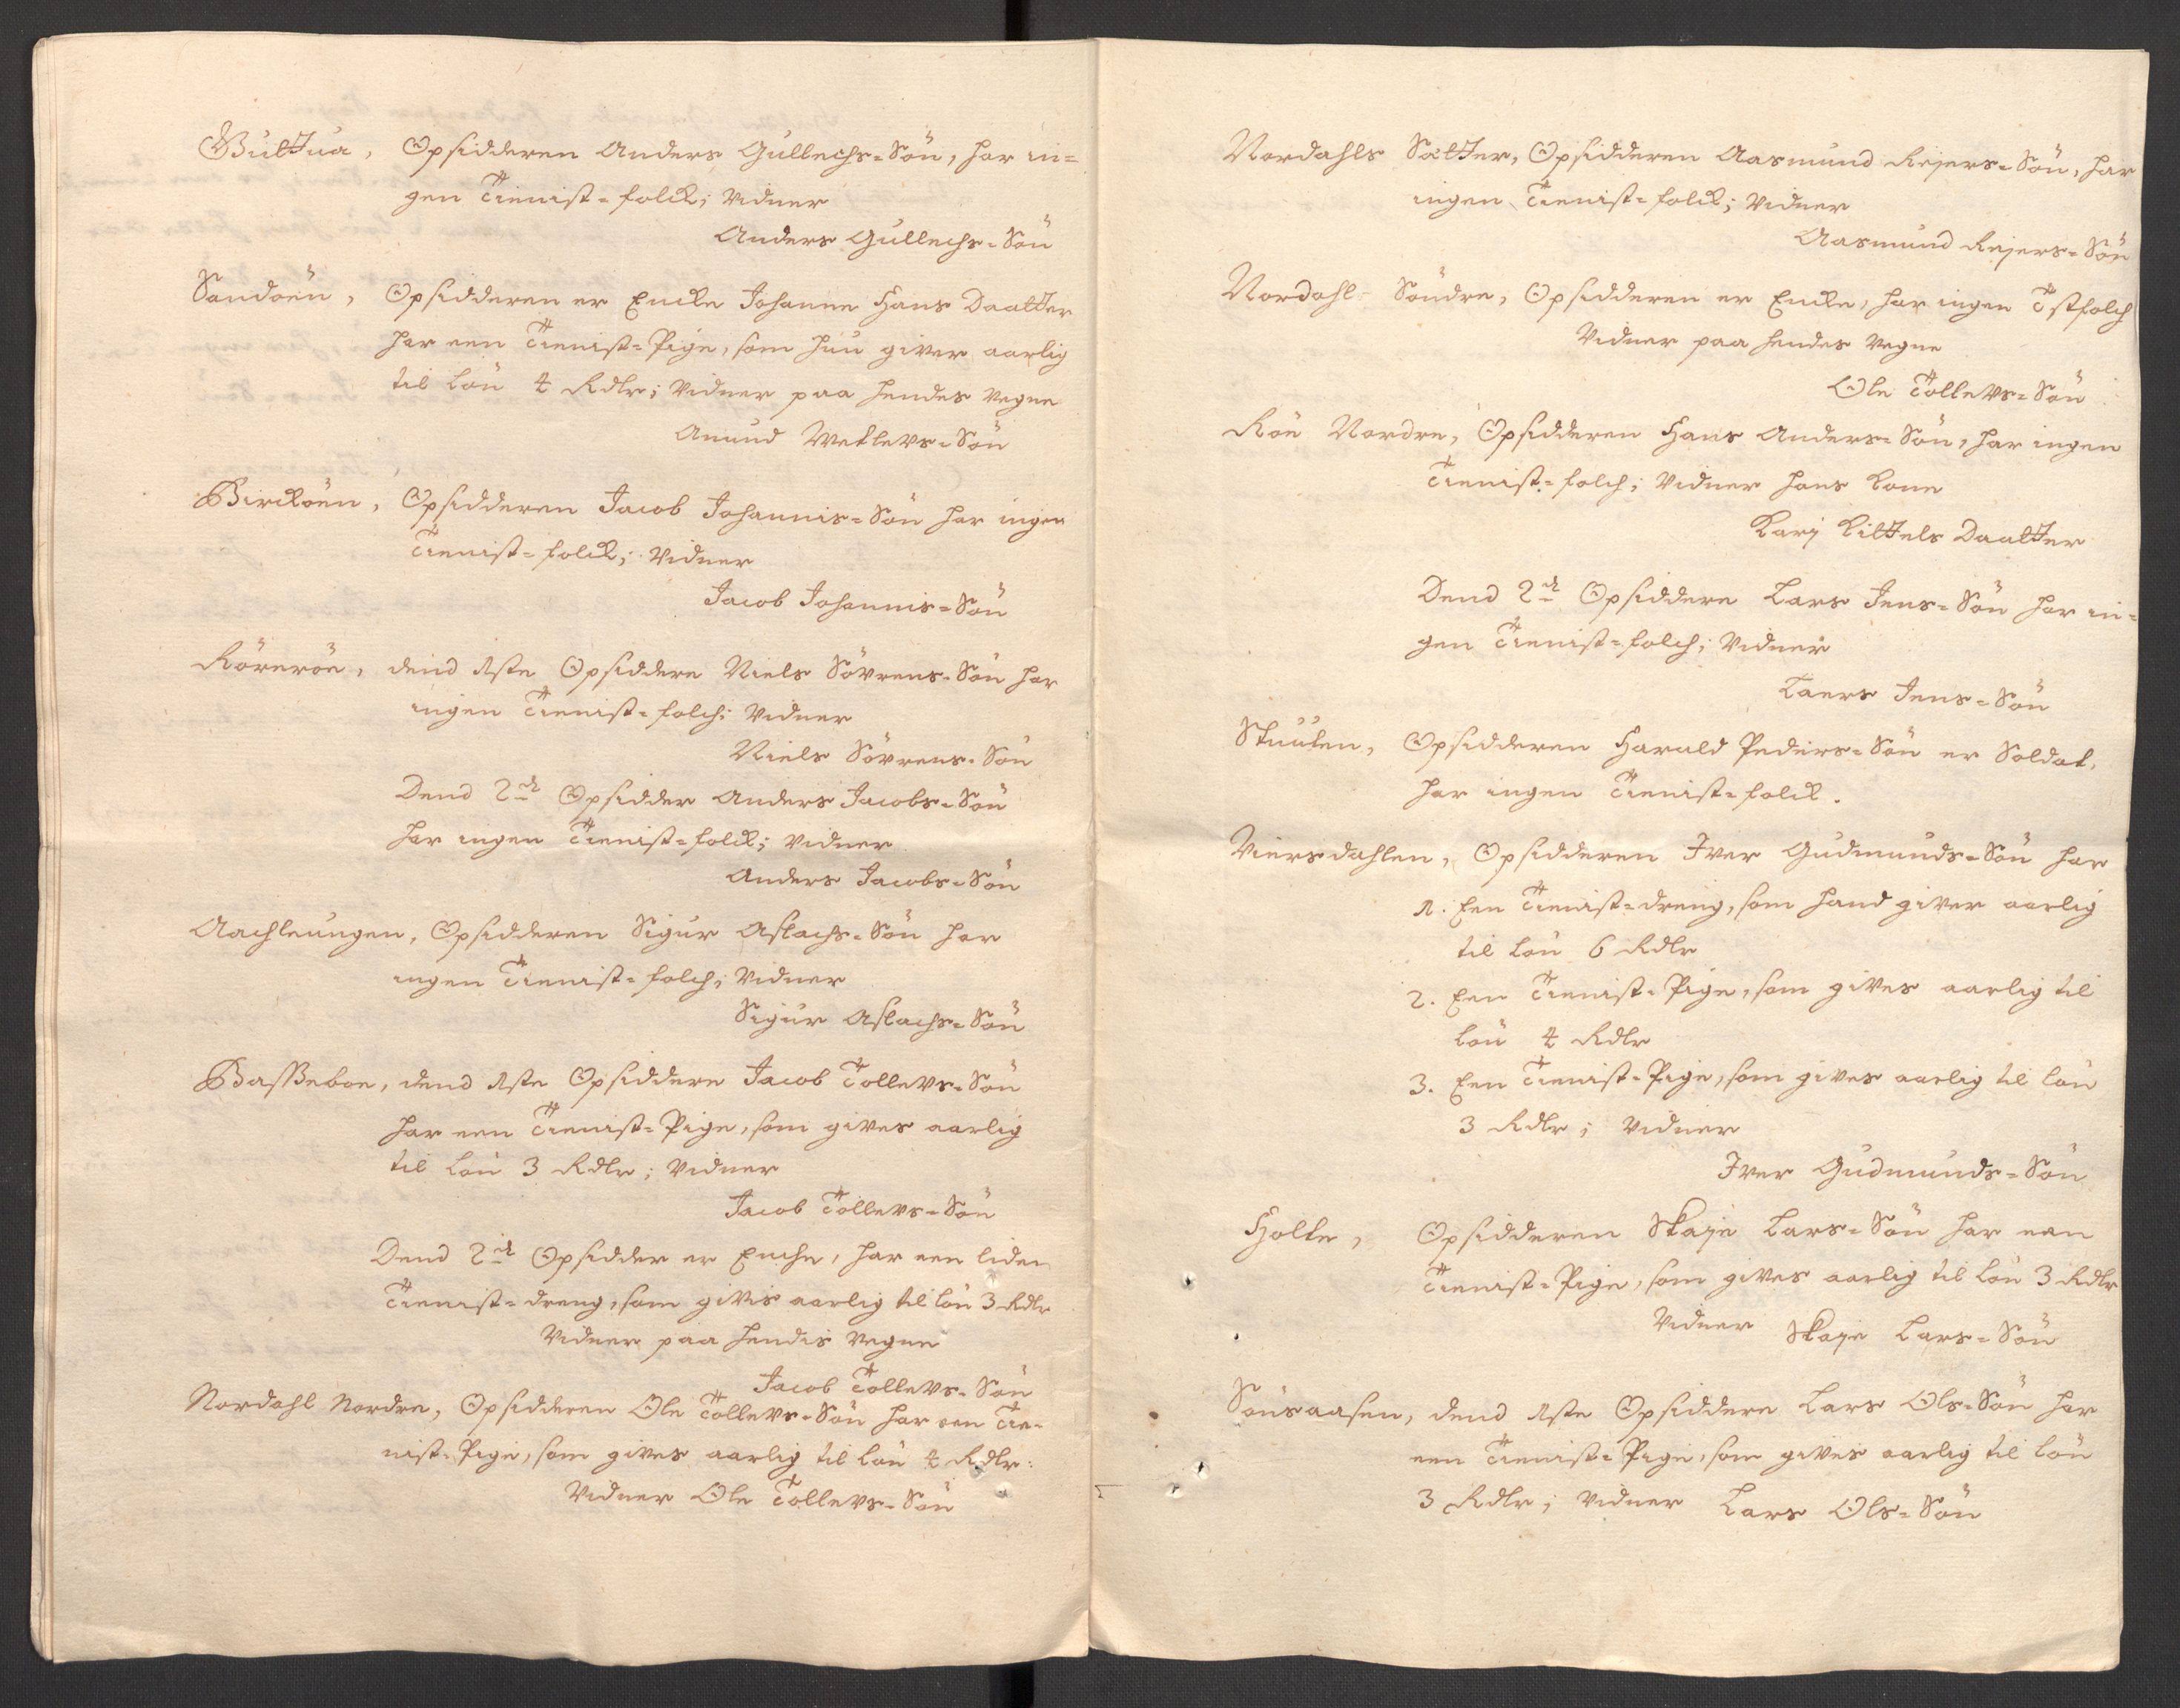 Buttua, Opsidderen Anders Gullechs-Søn, har in-
gen Tienist-folck; Vidner
Anders Gullechs-Søn
Sandøen, Opsidderen er Encke Johanne Hans Daatter
har een Tienist-Pige, som hun giver aarlig
til Løn 4 Rdlr; Vidner paa hendes Vegne
Amund Wetlevs-Søn
Birckøen, Opsidderen Jacob Johannis-Søn har ingen
Tienist-folck; Vidner
Jacob Johannis-Søn
Rörerøe, dend 1ste Opsiddere Niels Sövrens-Søn har
ingen Tienist-folch; Vidner
Niels Sövrens-Søn
Dend 2den Opsidder Anders Jacobs-Søn
har ingen Tienist-folck; Vidner
Anders Jacobs-Søn
Aachleungen, Opsidderen Sigur Aslachs-Søn har
ingen Tienist-folch; Vidner
Sigur Aslachs-Søn
Basseboe, dend 1ste Opsiddere Jacob Tollevs-Søn
har een Tienist-Pige, som gives aarlig
til Løn 3 Rdlr; Vidner
Jacob Tollevs-Søn
Dend 2den Opsidder er Enche, har een liden
Tienist-dreng, som givis aarlig til Løn 3 Rdlr
Vidner paa hendis Vegne
Jacob Tollevs-Søn
Nordahl Nordre, Opsidderen Ole Tollevs-Søn har een Tie-
nist-Pige, som gives aarlig til Løn 4 Rdlr:
Vidner Ole Tollevs-Søn
Nordahls Sætter, Opsidderen Aasmund Rejers-Søn, har
ingen Tienist-folck; Vidner
Aasmund Rejers-Søn
Nordahl Söndre, Opsidderen er Encke, har ingen Tstfolch
Vidner paa hendes Vegne
Ole Tollevs-Søn
Röe Nordre, Opsidderen Hans Anders-Søn, har ingen
Tienist-folch; Vidner hans Kone
Karj Kittels Daatter
Dend 2den Opsiddere Lars Jens-Søn har in-
gen Tienist-folch; Vidner
Laers Jens-Søn
Stuulen, Opsidderen Harald Peders-Søn er Soldat,
har ingen Tienist-folck.
Viersdahlen, Opsidderen Iver Gudmunds-Søn har
1. Een Tienist-dreng, som hand giver aarlig
til Løn 6 Rdlr
2. Een Tienist-Pige, som gives aarlig til
Løn 4 Rdlr
3. Een Tienist-Pige, som gives aarlig til Løn
3 Rdlr; Vidner
Iver Gudmunds-Søn
Holte, Opsidderen Skaje Lars-Søn har een
Tienist-Pige, som gives aarlig til Løn 3 Rdlr
Vidner Skaje Lars-Søn
Sønsaasen, dend 1ste Opsiddere Lars Ols-Søn har
een Tienist-Pige, som gives aarlig til Løn
3 Rdlr; Vidner Lars Ols-Søn